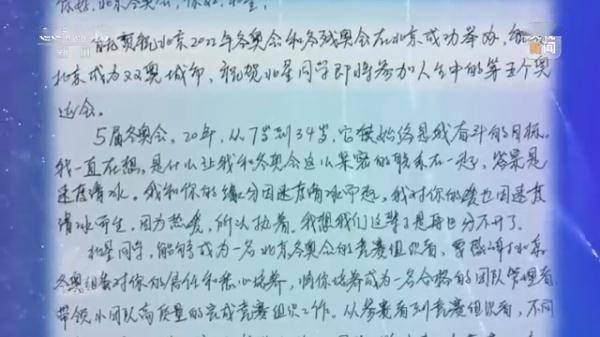 你好，北京冬奥会，你好，北星
祝贺北京2022年冬奥会和冬残奥会在北京成功举办，祝贺
北京成为双奥城市，祝贺北星同学即将参加人生中的第五个奥
运会。
5届冬奥会，20年，从7岁到34岁，它始终是我奋斗的目标。
我一直在想，是什么让我和冬奥会这么紧密的联系在一起，答案是
速度滑冰。我和你的缘分因速度滑冰而起，我对你的爱也因速度
滑冰而生，因为热爱，所以执着。我想我们这辈子是再也分不开了。
北星同学，能够成为一名北京冬奥会的竞赛组织者，要感谢北京
冬奥组委对你的信任和悉心培养，将你培养成为一名合格的团队管理者
带领小团队高质量的完成竞赛组织工作。从参赛者到竞赛组织者，不同
新闻